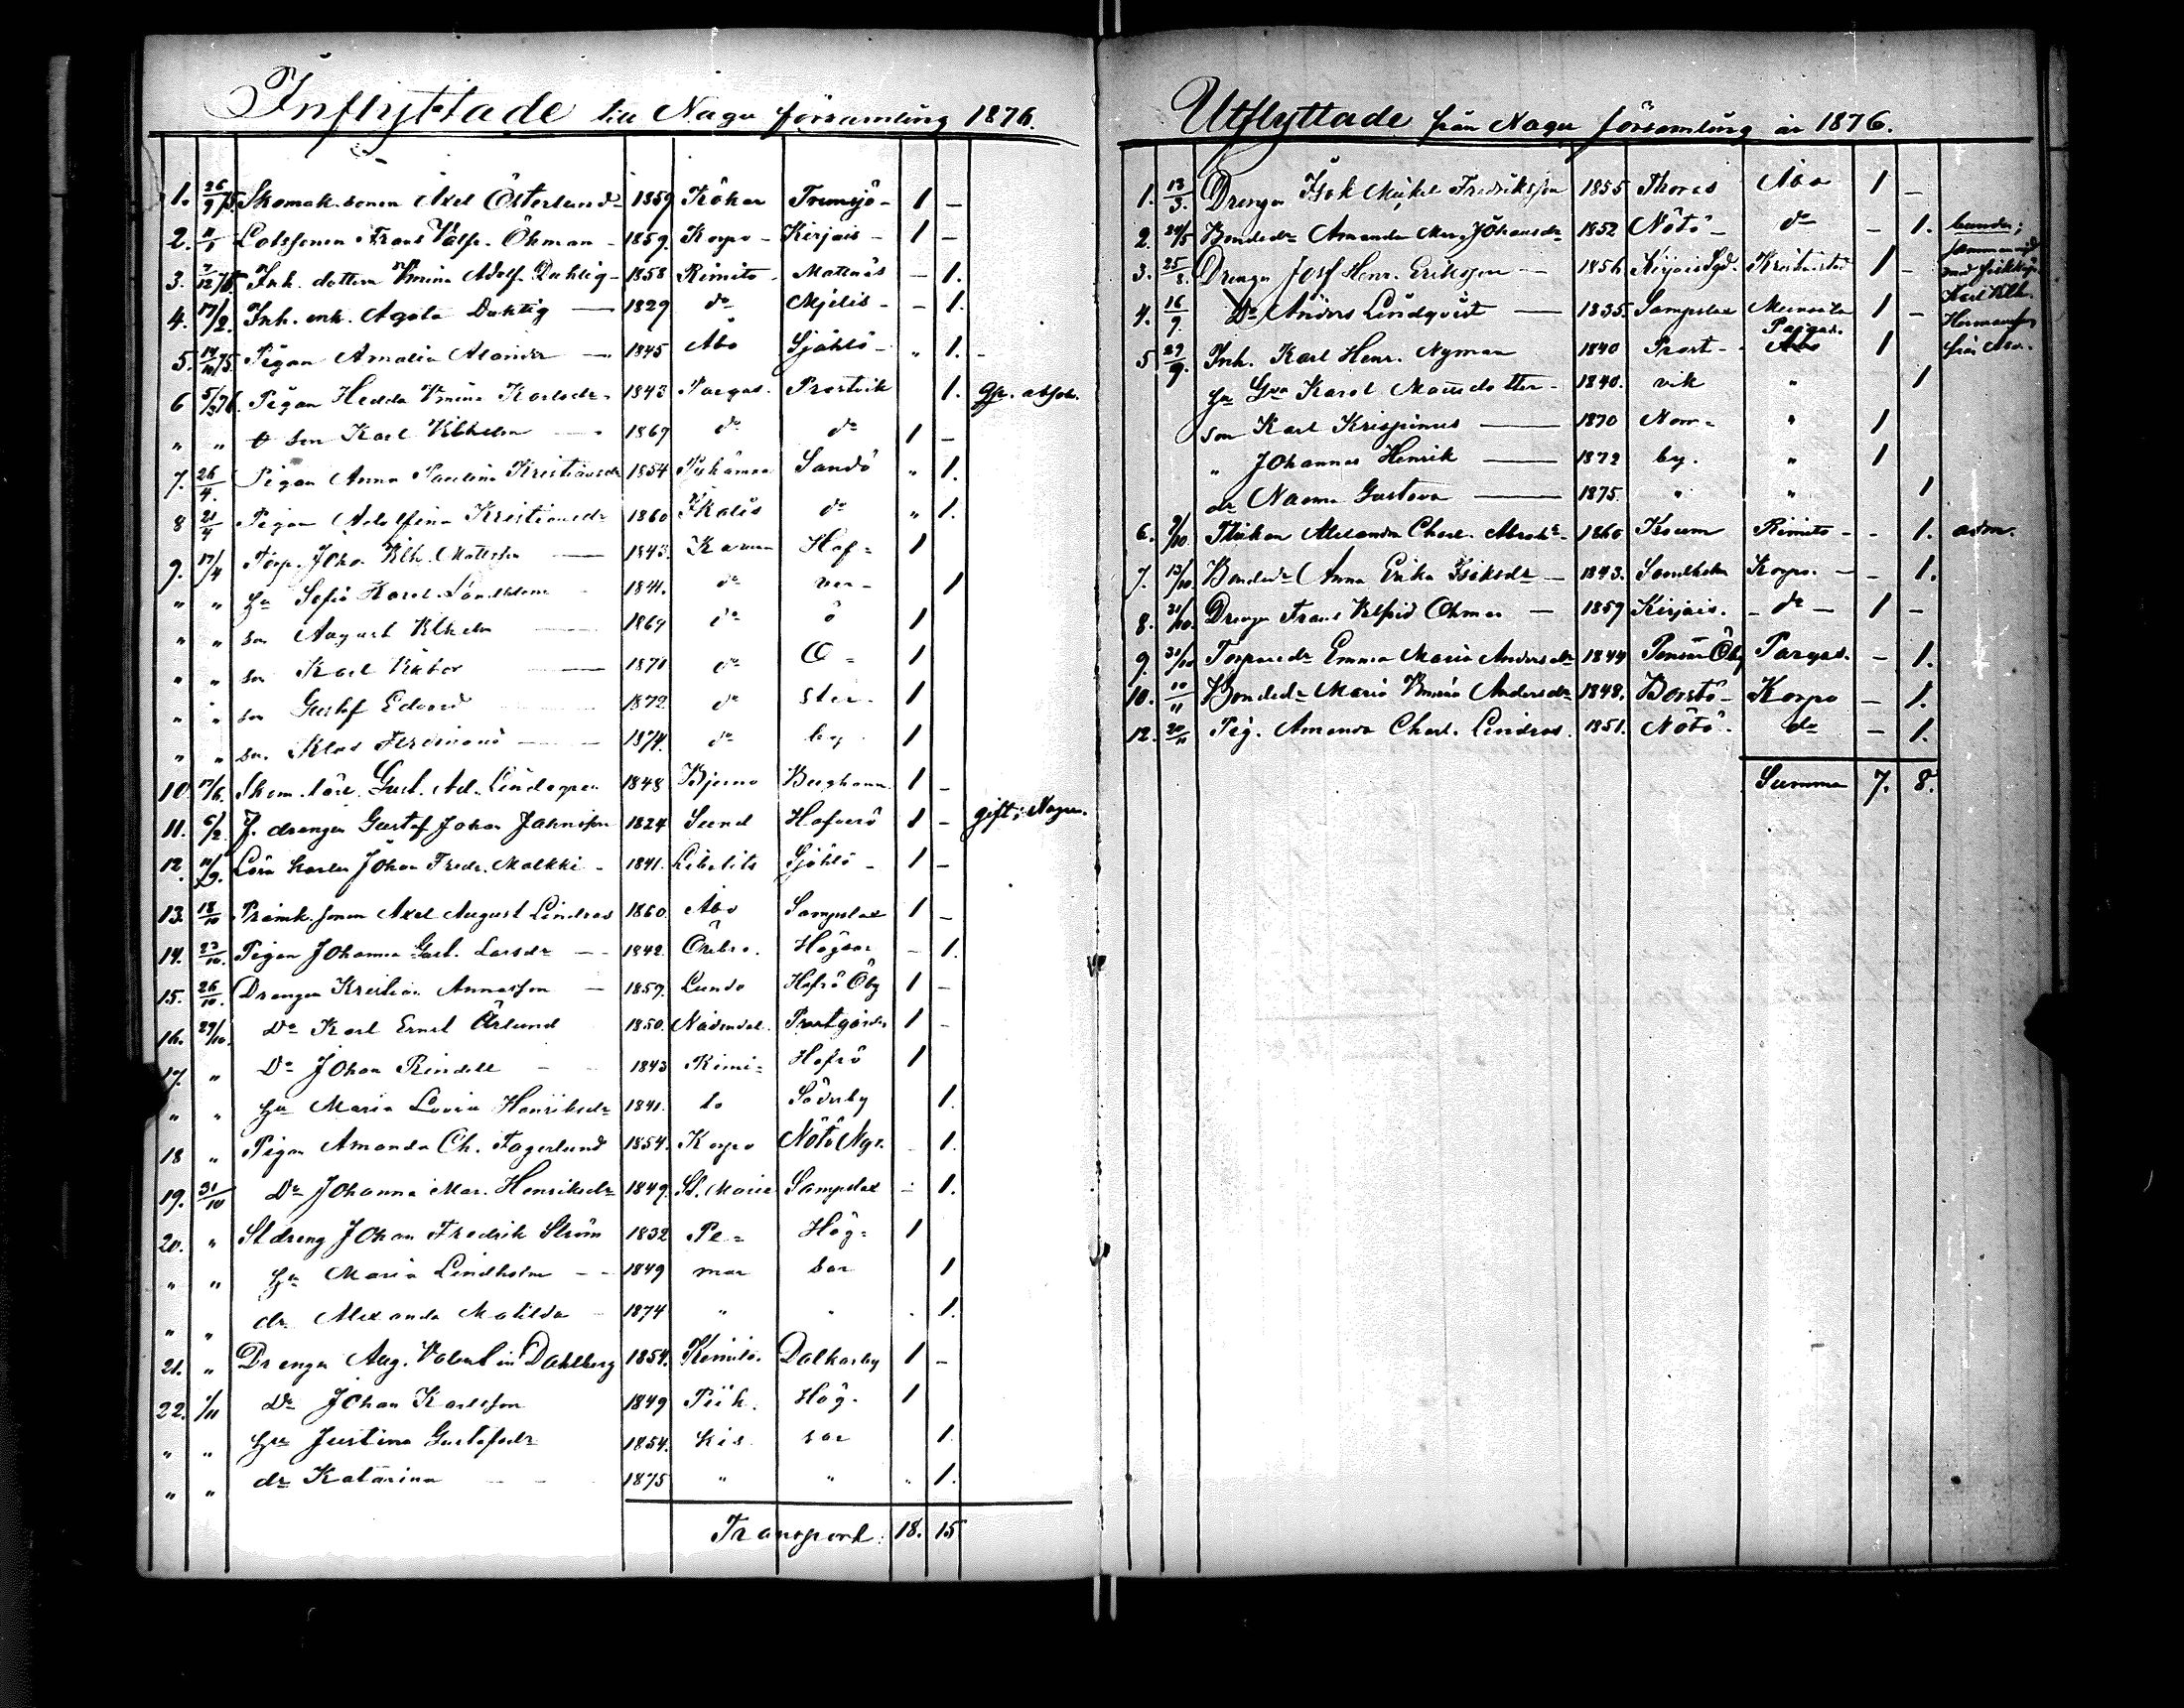 Inflyttade till Nagu församling 1876.
1. 26/9 75. Skomak. sonen Axel Österlund 1859 Kökar Trunsjö - 1 -
2. Lotssonen Frans Valfr. Öhman - 1859. Korpo - Kirjais - 1 -
3. 7/12 75 Inh. dottern Vmina Adolf. Dahlig - 1858 Rimito - Mattnäs - 1.
4. 17/2. Inh. enk. Agata Dahlig - 1829 do Mjelis - - 1.
5. 75. Pigan Amalia Alander - 1845 Åbo Sjählö - " 1. -
6 5/2 76. Pigan Hedda Vmina Karlsdr. 1843 Pargas. Prostvik 1. absol.
" " son Karl Vilhelm - 1867 do do 1 -
7. 26/4. Pigan Anna Paulina Kristiansdr 1854 Sandö " 1.
8 21/4 Pigan Adolfina Kristiansdr 1860 do " 1.
9. 17/4 Torp. Joha Vilh. Mattsson - 1843. Karuna Haf= 1
" " hu Sofia Karol. Landholm 1841. do ver- 1
" " son August Vilhelm 1869 do ö 1
" " son Karl Viktor 1870 do Ö= 1
" " son Gustaf Edvard 1872 do ster- 1
" " son. Klas Ferdinand 1874. do by 1
10. 17/6. Skom. lärl. Gust. Ad. Lindegren 1848 Bjerno Berghamn 1 -
11. 6/2. J. drengen Gustaf Johan Jahnsson 1824 Sund Hafverö 1 - gift i Nagu.
12. 11/9. Johan Fredr. Malkki - 1841. Libelits Sjählö - 1 -
13. 18/10 Axel August Lindros 1860. Åbo Sampslax 1 -
14. 23/10. Pigan Johanna Gust. Larsdr - 1842. Örebro. Högsar - 1.
15. 26/10. Drengen Kristian Annasson - 1859. Lundo Hafrö Öby 1 -
16. 29/10. Do Karl Ernst Ärlund 1850. Nådendal. Prostgården 1 -
17. " Do Johan Rindell - 1843 Kimi= Hafrö 1
" " hu Maria Lovisa Henriksdr 1841. to Söderby 1.
18 " Pigan Amanda Ch. Fagerlund 1854. Korpo Nötö Ngr. - 1.
19. 31/10 Do Johanna Mar. Henriksdr 1849. St. Marie Sampslax - 1.
20. " St dreng Johan Fredrik Ström 1832 Pe= Hög= 1
" " hu Maria Lindholm - - 1849 mar sar 1
" " dr. Alexandra Matilda - 1874 " " . 1.
21. " Drengen Aug. Valentin Dahlberg 1854. Kimito. Dalkarby 1 -
22. 1/11 Do Johan Karlsson 1849 Piik. Hög. 1
" " hu Justina Gustafsdr 1854. kis sar 1.
" " dr Katarina - - 1875 " " " 1.
Transport: 18. 15
Utflyttade från Nagu församling år 1876.
1. 13/3. Drengen Isak Mickel Fredriksson 1855 Thoras Åbo 1 -
2. 24/5 Bondedr Amanda Mar. Johansdr 1852 Nötö - do - 1.
3. 25/8. Drengen Josf Henr. Eriksson - 1856 Kirjais Sgd. Kristinestad 1 -
4. 16/9. Do Anders Lindqvist - 1835. Sampslax 1 - Karl Vilh.
Pargas. Hermansson
5 29/9. Inh. Karl Henr. Nyman 1840 Prost- Åbo 1 från Åbo.
hu Karol. Matsdotter - 1840. vik " 1
son Karl Krispinus - 1870 Norr= " 1
" Johannes Henrik - 1872 by. " 1
dr Naema Gustava - 1875. " " 1
6. 9/10. Flickan Alexandra Charl. 1860 Rimito - - 1. adm.
7. 13/10. Bondedr Anna Erika Isaksdr - 1843. Sandholm Korpo. - - 1.
8. 21/10. Drengen Frans Valfrid Öhman - 1859 Kirjais. - do - 1 -
9. 30/10 Torparedr Emma Maria Andersdr 1844 Pensar Öby Pargas. - 1.
10. 10/11 Bondedr Maria Vmina Andersdr 1848. Borstö - Korpo - 1.
12. 20/11 Pig. Amanda Charl. Lindros. 1851. Nötö. do - 1.
Summa 7. 8.